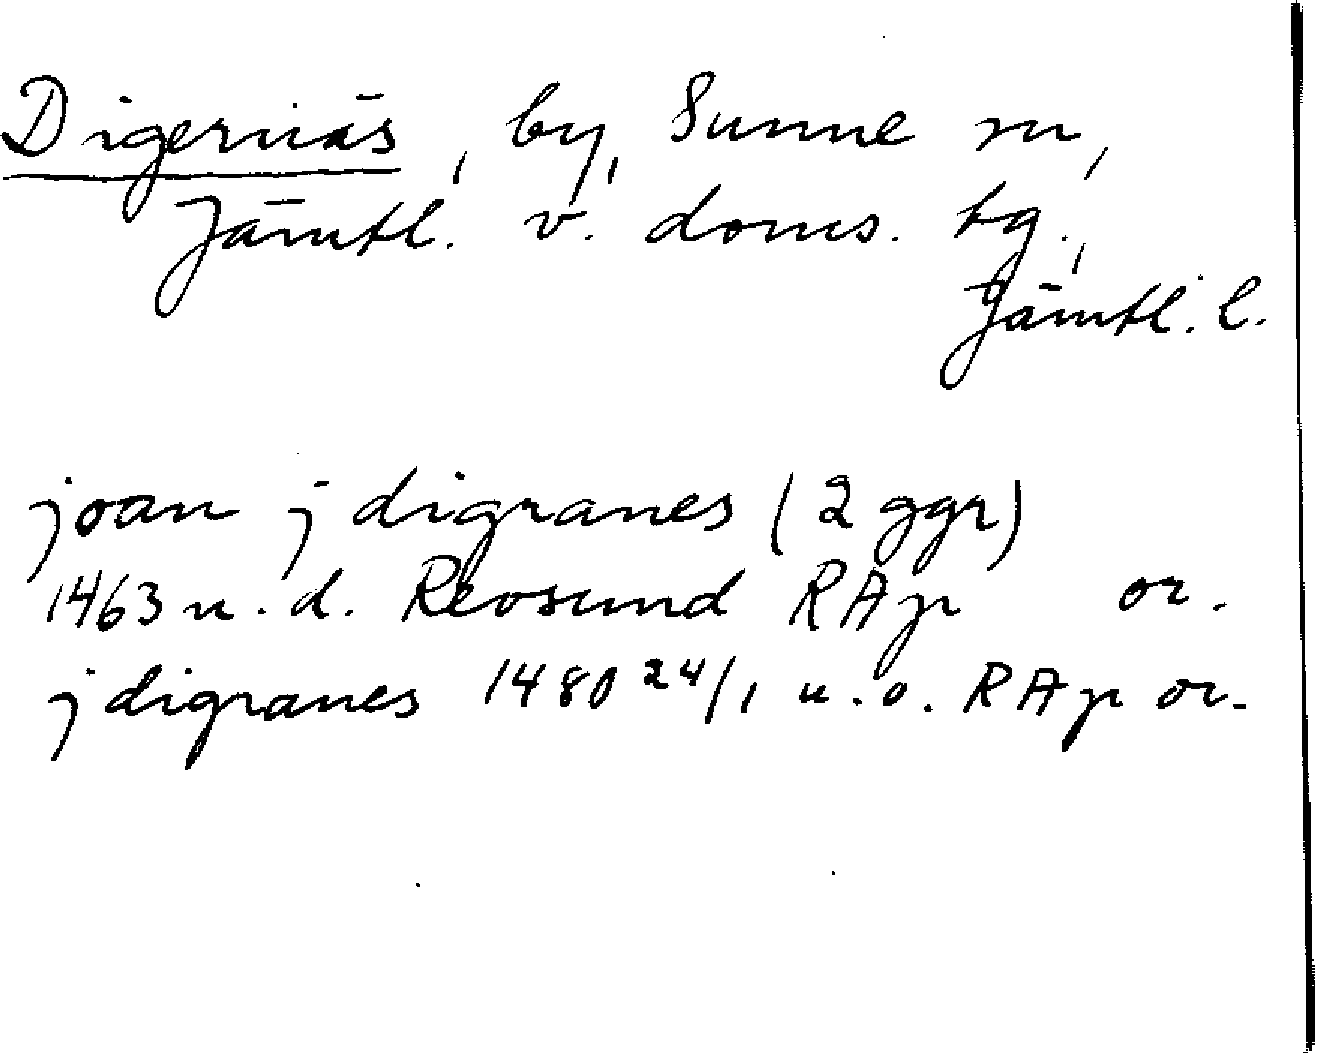 Digernäs, by, Sunne sn,
Jämtl. v. doms. tg.,
Jämtl. l.
joan j digranes (2 ggr)
1463 u. d. Revsund RAp or.
j digranes 1480 24/1 u. o. RAp or.